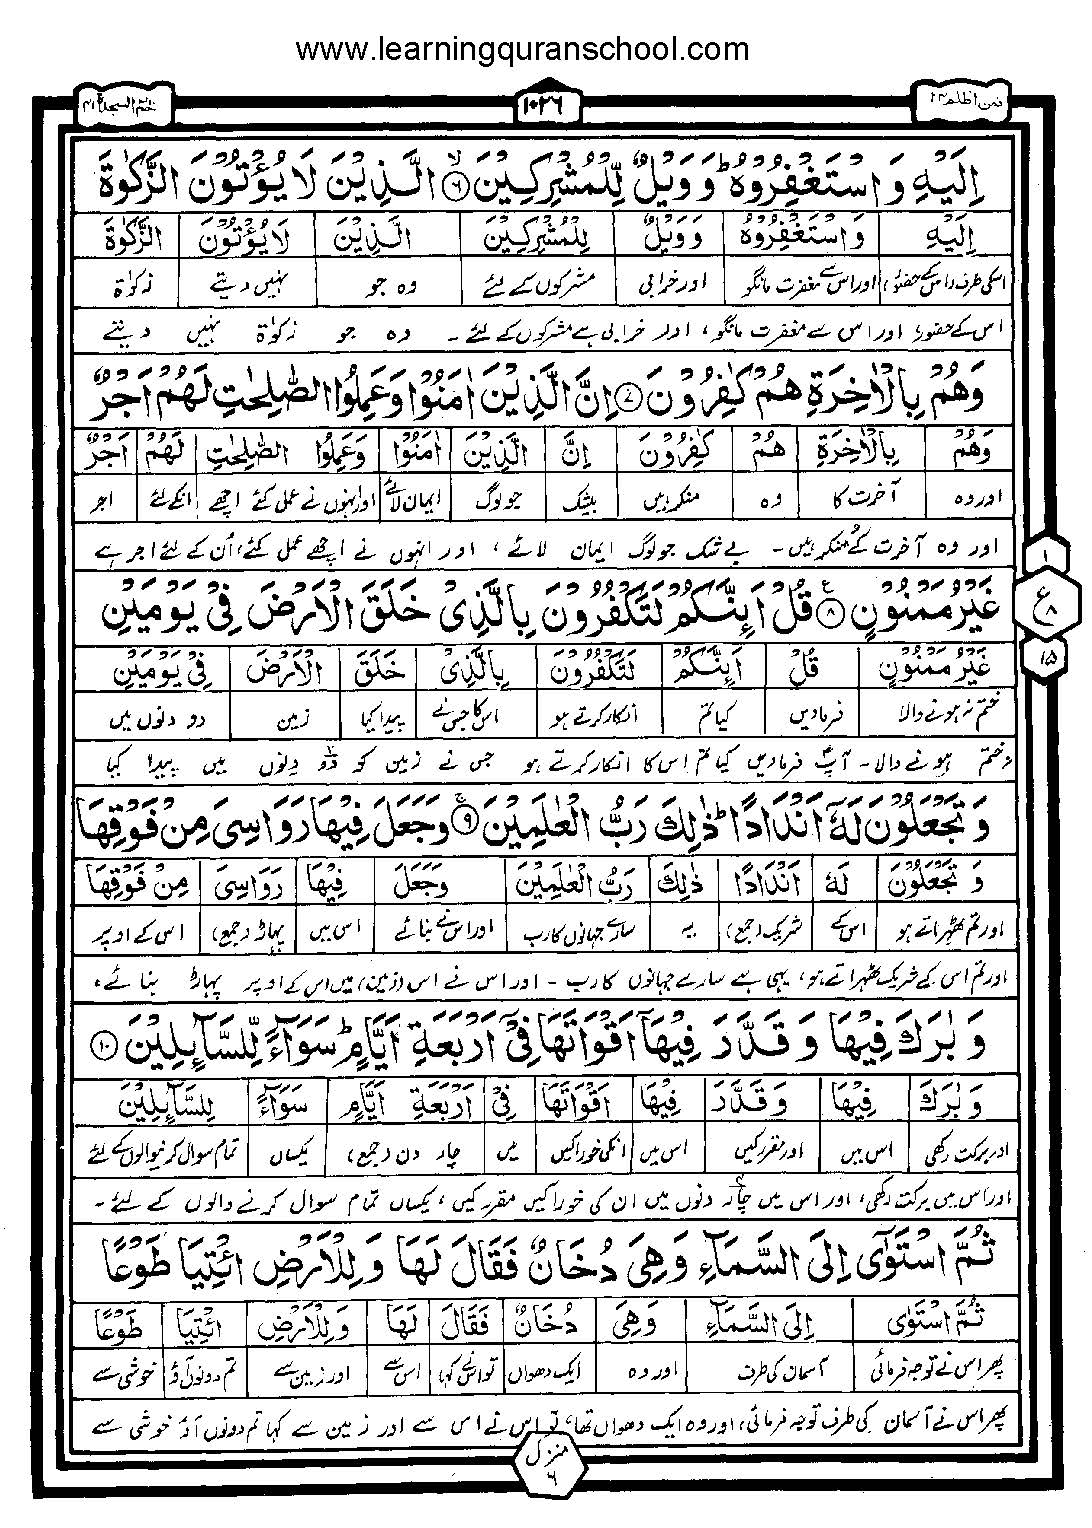 www.learningquranschool.com
حٰمٓ السجدة ۴۱
۱۰۲۶
فمن اظلم ۲۴
اِلَيْهِ وَاسْتَغْفِرُوْهُ ؕ وَوَيْلٌ لِّلْمُشْرِكِيْنَ ۙ۶ الَّذِيْنَ لَا يُؤْتُوْنَ الزَّكٰوةَ
اِلَيْهِ | وَاسْتَغْفِرُوْهُ | وَوَيْلٌ | لِّلْمُشْرِكِيْنَ | الَّذِيْنَ | لَا يُؤْتُوْنَ | الزَّكٰوةَ
اسکی طرف (اس کے حضور) | اور اس سے مغفرت مانگو | اور خرابی | مشرکوں کے لئے | وہ جو | نہیں دیتے | زکوٰۃ
اس کے حضور، اور اس سے مغفرت مانگو، اور خرابی ہے مشرکوں کے لئے۔ وہ جو زکوٰۃ نہیں دیتے
وَهُمْ بِالْاٰخِرَةِ هُمْ كٰفِرُوْنَ ۷ اِنَّ الَّذِيْنَ اٰمَنُوْا وَعَمِلُوا الصّٰلِحٰتِ لَهُمْ اَجْرٌ
وَهُمْ | بِالْاٰخِرَةِ | هُمْ | كٰفِرُوْنَ | اِنَّ | الَّذِيْنَ | اٰمَنُوْا | وَعَمِلُوا الصّٰلِحٰتِ | لَهُمْ | اَجْرٌ
اور وہ | آخرت کا | وہ | منکر ہیں | بیشک | جو لوگ | ایمان لائے | اور انہوں نے عمل کئے اچھے | انکے لئے | اجر
اور وہ آخرت کے منکر ہیں۔ بے شک جو لوگ ایمان لائے، اور انہوں نے اچھے عمل کئے، اُن کے لئے اجر ہے
غَيْرُ مَمْنُوْنٍ ۸ قُلْ اَئِنَّكُمْ لَتَكْفُرُوْنَ بِالَّذِيْ خَلَقَ الْاَرْضَ فِيْ يَوْمَيْنِ
۱
ع
۸
۱۵
غَيْرُ مَمْنُوْنٍ | قُلْ | اَئِنَّكُمْ | لَتَكْفُرُوْنَ | بِالَّذِيْ | خَلَقَ | الْاَرْضَ | فِيْ يَوْمَيْنِ
ختم نہ ہونے والا | فرمادیں | کیا تم | انکار کرتے ہو | اس کا جس نے | پیدا کیا | زمین | دو دنوں میں
نہ ختم ہونے والا۔ آپؐ فرمادیں کیا تم اس کا انکار کرتے ہو جس نے زمین کو دو دنوں میں پیدا کیا
وَتَجْعَلُوْنَ لَهٗٓ اَنْدَادًا ؕ ذٰلِكَ رَبُّ الْعٰلَمِيْنَ ۹ وَجَعَلَ فِيْهَا رَوَاسِيَ مِنْ فَوْقِهَا
وَتَجْعَلُوْنَ | لَهٗ | اَنْدَادًا | ذٰلِكَ | رَبُّ الْعٰلَمِيْنَ | وَجَعَلَ | فِيْهَا | رَوَاسِيَ | مِنْ فَوْقِهَا
اور تم ٹھہراتے ہو | اس کے | شریک (جمع) | یہ | سارے جہانوں کا رب | اور اس نے بنائے | اس میں | پہاڑ (جمع) | اس کے اوپر
اور تم اس کے شریک ٹھہراتے ہو، یہی ہے سارے جہانوں کا رب۔ اور اس نے اس (زمین) میں اس کے اوپر پہاڑ بنائے،
وَبٰرَكَ فِيْهَا وَقَدَّرَ فِيْهَآ اَقْوَاتَهَا فِيْٓ اَرْبَعَةِ اَيَّامٍ ؕ سَوَآءً لِّلسَّآئِلِيْنَ ۱۰
وَبٰرَكَ | فِيْهَا | وَقَدَّرَ | فِيْهَا | اَقْوَاتَهَا | فِيْ | اَرْبَعَةِ اَيَّامٍ | سَوَآءً | لِّلسَّآئِلِيْنَ
اور برکت رکھی | اس میں | اور مقرر کیں | اس میں | انکی خوراکیں | میں | چار دن (جمع) | یکساں | تمام سوال کرنیوالوں کے لئے
اور اس میں برکت رکھی، اور اس میں چار دنوں میں ان کی خوراکیں مقرر کیں، یکساں تمام سوال کرنے والوں کے لئے۔
ثُمَّ اسْتَوٰٓى اِلَى السَّمَآءِ وَهِيَ دُخَانٌ فَقَالَ لَهَا وَلِلْاَرْضِ ائْتِيَا طَوْعًا
ثُمَّ اسْتَوٰٓى | اِلَى السَّمَآءِ | وَهِيَ | دُخَانٌ | فَقَالَ | لَهَا | وَلِلْاَرْضِ | ائْتِيَا | طَوْعًا
پھر اس نے توجہ فرمائی | آسمان کی طرف | اور وہ | ایک دھواں | تو اس نے کہا | اس سے | اور زمین سے | تم دونوں آؤ | خوشی سے
پھر اس نے آسمان کی طرف توجہ فرمائی، اور وہ ایک دھواں تھا، تو اس نے اس سے اور زمین سے کہا تم دونوں آؤ خوشی سے
منزل
۶